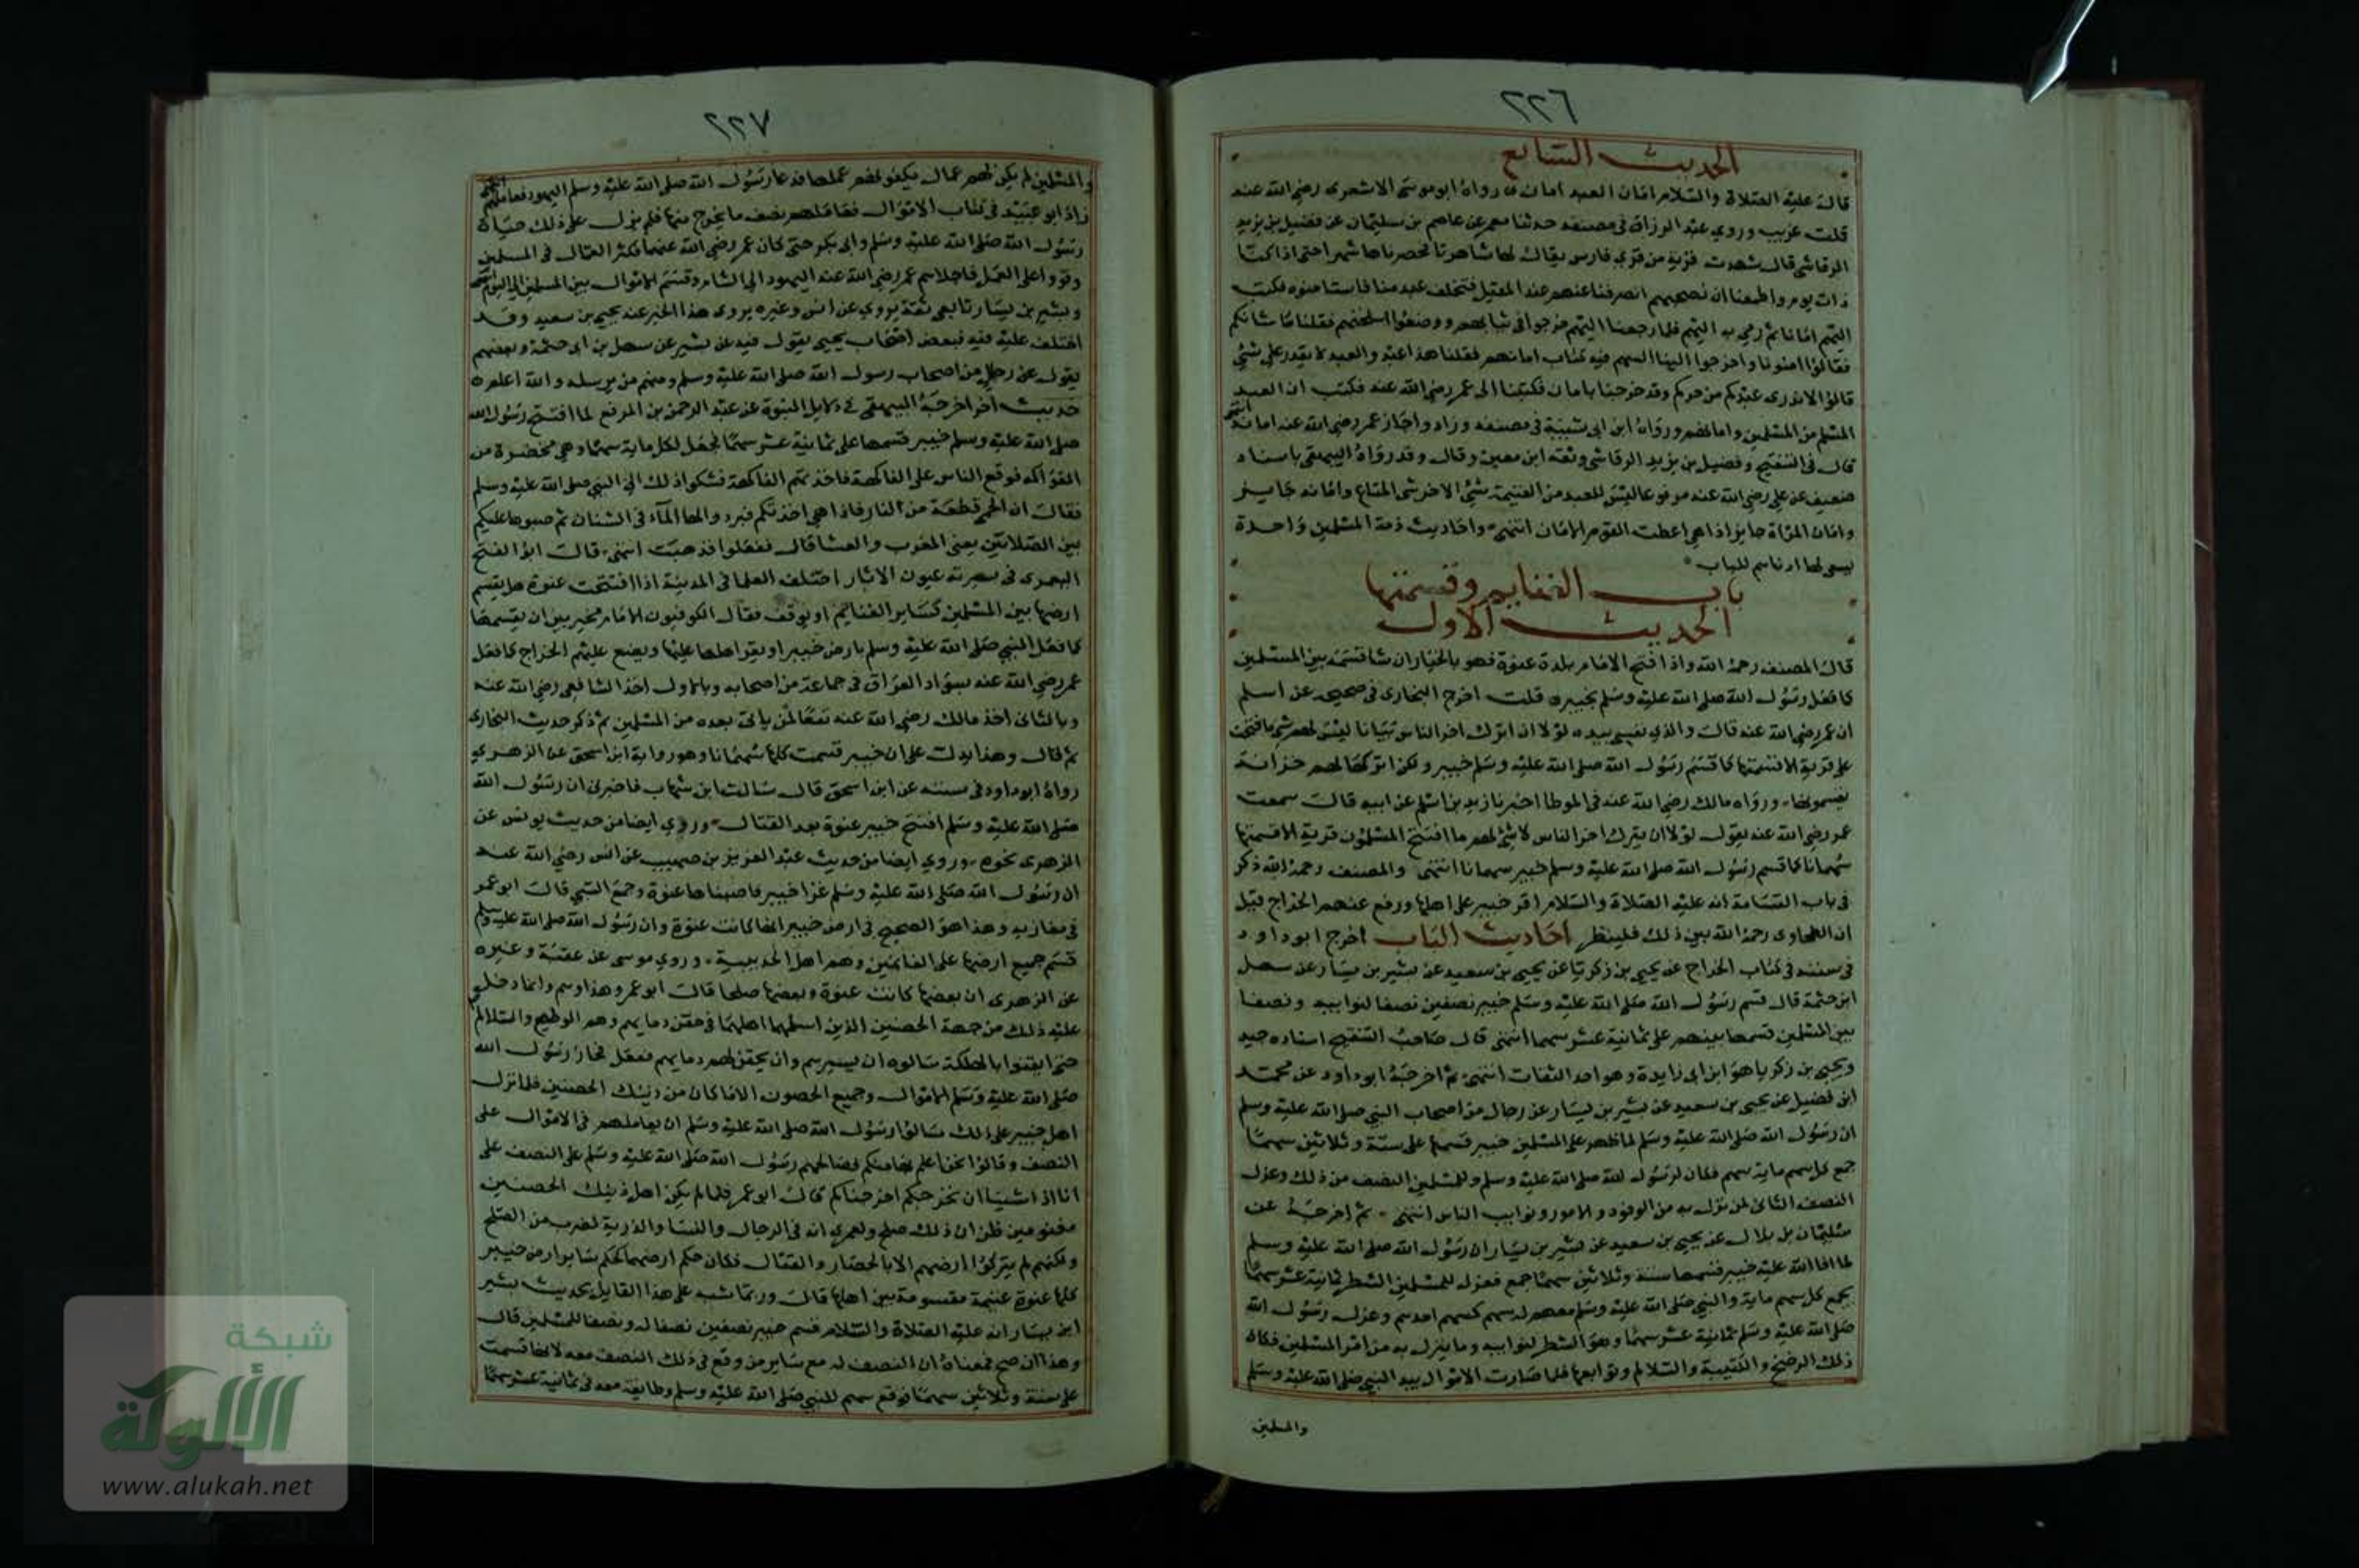 ٢٢٦
الحديث السابع
قال عليه الصلاة والسلام امان العبد امان ٥ رواه ابو موسى الاشعري رضي الله عنه
قلت غريب وروي عبد الرزاق في مصنفه حدثنا معمر عن عاصم بن سليمان عن فضيل بن يزيد
الرقاشي قال شهدت قرية من قري فارس يقال لها شاهرتا فحصرناها شهرا حتى اذا كنا
ذات يوم وطمعنا ان نصبحهم انصرفنا عنهم عند المقيل فتخلف عبد منا فاستامنوه فكتب
اليهم امانا ثم رمي به اليهم فلما رجعنا اليهم خرجوا في ثيابهم ووضعوا اسلحتهم فقلنا ما شانكم
فقالوا امنتونا واخرجوا الينا السهم فيه كتاب امانهم فقلنا هذا عبد والعبد لا يقدر على شئ
قالوا لا ندري عبدكم من حركم وقد خرجنا بامان فكتبنا الى عمر رضي الله عنه فكتب ان العبد
المسلم من المسلمين وامانهم ورواه ابن ابي شيبة في مصنفه وزاد واجاز عمر رضي الله عنه امانه انتهى
قال في التنقيح وفضيل بن يزيد الرقاشي وثقه ابن معين وقال وقد رواه البيهقي باسناد
ضعيف عن علي رضي الله عنه مرفوعا ليس للعبد من الغنيمة شئ الا خرثي المتاع وامانه جايز
وامان المراة جايز اذا هي اعطت القوم الامان انتهى واحاديث ذمة المسلمين واحدة
يسعى بها ادناهم للباب
باب الغنايم وقسمتها
الحديث الاول
قال المصنف رحمه الله واذا فتح الامام بلدة عنوة فهو بالخيار ان شا قسمه بين المسلمين
كما فعل رسول الله صلى الله عليه وسلم بخيبره قلت اخرج البخاري في صحيحه عن اسلم
ان عمر رضي الله عنه قال والذي نفسي بيده لولا ان اترك اخر الناس ببانا ليس لهم شئ ما فتحت
على قرية الا قسمتها كما قسم رسول الله صلى الله عليه وسلم خيبر ولكن اتركها لهم خزانة
يقسمونها ورواه مالك رضي الله عنه في الموطا اخبرنا زيد بن اسلم عن ابيه قال سمعت
عمر رضي الله عنه يقول لولا ان يترك اخر الناس لا شئ لهم ما افتتح المسلمون قرية الا قسمتها
سهمانا كما قسم رسول الله صلى الله عليه وسلم خيبر سهمانا انتهى والمصنف رحمه الله ذكر
في باب القسامة انه عليه الصلاة والسلام اقر خيبر على اهلها ورفع عنهم الخراج قيل
ان الطحاوي رحمه الله بين ذلك فلينظر احاديث الباب اخرج ابو داود
في سننه في كتاب الخراج عن يحيى بن زكريا عن يحيى بن سعيد عن بشير بن يسار عن سهل
ابن حثمة قال قسم رسول الله صلى الله عليه وسلم خيبر نصفين نصفا لنوايبه ونصفا
بين المسلمين قسمها بينهم على ثمانية عشر سهما انتهى قال صاحب التنقيح اسناده جيد
ويحيى بن زكريا هو ابن ابي زايدة وهو احد الثقات انتهى ثم اخرجه ابو داود عن محمد
ابن فضيل عن يحيى بن سعيد عن بشير بن يسار عن رجال من اصحاب النبي صلى الله عليه وسلم
ان رسول الله صلى الله عليه وسلم لما ظهر على المسلمين خيبر قسمها على ستة وثلاثين سهما
جمع كل سهم ماية سهم فكان لرسول الله صلى الله عليه وسلم وللمسلمين النصف من ذلك وعزل
النصف الثاني لمن نزل به من الوفود والامور ونوايب الناس انتهى ثم اخرجه عن
سليمان بن بلال عن يحيى بن سعيد عن بشير بن يسار ان رسول الله صلى الله عليه وسلم
لما افا الله عليه خيبر قسمها ستة وثلاثين سهما جمع فعزل للمسلمين الشطر ثمانية عشر سهما
يجمع كل سهم ماية والنبي صلى الله عليه وسلم معهم له سهم كسهم احدهم وعزل رسول الله
صلى الله عليه وسلم ثمانية عشر سهما وهو الشطر لنوايبه وما ينزل به من امر المسلمين فكان
ذلك الوضيح والكتيبة والسلالم وتوابعها فلما صارت الاموال بيد النبي صلى الله عليه وسلم
والمسلمين
٢٢٧
والمسلمين لم يكن لهم عمال يكفونهم عملها فدعا رسول الله صلى الله عليه وسلم اليهود فعاملهم انتهى
زاد ابو عبيد في كتاب الاموال فعاملهم بنصف ما يخرج منها فلم يزل على ذلك حياة
رسول الله صلى الله عليه وسلم وابي بكر حتى كان عمر رضي الله عنهما فكثر العمال في المسلمين
وقووا على العمل فاجلاهم عمر رضي الله عنه اليهود الى الشام وقسم الاموال بين المسلمين الى اليوم انتهى
وبشير بن يسار تابعي ثقة يروي عن انس وغيره يروى هذا الخبر عنه يحيى بن سعيد وقد
اختلف عليه فيه فبعض اصحاب يحيى يقول فيه عن بشير عن سهل بن ابي حثمة وبعضهم
يقول عن رجال من اصحاب رسول الله صلى الله عليه وسلم ومنهم من يرسله والله اعلم ٥
حديث اخر اخرجه البيهقي في دلايل النبوة عن عبد الرحمن بن المرقع لما افتتح رسول الله
صلى الله عليه وسلم خيبر قسمها على ثمانية عشر سهما فجعل لكل ماية سهما وهي مخضرة من
الفواكه فوقع الناس على الفاكهة فاخذتهم الفاكهة فشكوا ذلك الى النبي صلى الله عليه وسلم
فقال ان الحمى قطعة من النار فاذا هي اخذتكم فبردوا لها المآء في الشنان ثم صبوها عليكم
بين الصلاتين يعني المغرب والعشا قال ففعلوا فذهبت انتهى قال ابو الفتح
اليعمري في سيرته عيون الاثار اختلف العلما في المدينة اذا افتتحت عنوة هل يقسم
ارضها بين المسلمين كساير الغنايم او يوقف فقال الكوفيون الامام مخير بين ان يقسمها
كما فعل النبي صلى الله عليه وسلم بارض خيبر او يقر اهلها عليها ويضع عليهم الخراج كما فعل
عمر رضي الله عنه بسواد العراق في جماعة من اصحابه وبالاول اخذ الشافعي رضي الله عنه
وبالثاني اخذ مالك رضي الله عنه نفعا لمن ياتي بعده من المسلمين ثم ذكر حديث البخاري
ثم قال وهذا يدل على ان خيبر قسمت كلها سهمانا وهو رواية ابن اسحق عن الزهري
رواه ابو داود في سننه عن ابن اسحق قال سالت ابن شهاب فاخبرني ان رسول الله
صلى الله عليه وسلم افتتح خيبر عنوة بعد القتال وروي ايضا من حديث يونس عن
الزهري نحوه وروي ايضا من حديث عبد العزيز بن صهيب عن انس رضي الله عنه
ان رسول الله صلى الله عليه وسلم غزا خيبر فاصبناها عنوة وجمع السبي قال ابو عمر
في مغازيه وهذا هو الصحيح في ارض خيبر انها كانت عنوة وان رسول الله صلى الله عليه وسلم
قسم جميع ارضها على الغانمين وهم اهل الحديبية وروي موسى عن عقبة وغيره
عن الزهري ان بعضها كانت عنوة وبعضها صلحا قال ابو عمر وهذا وهم وانما دخل
عليه ذلك من جهة الحصنين الذين اسلمهما اهلهما في حقن دمايهم وهم الوطيح والسلالم
حتى ايقنوا بالهلكة سالوه ان يسيرهم وان يحقن لهم دمايهم ففعل فحاز رسول الله
صلى الله عليه وسلم الاموال وجميع الحصون الا ما كان من ذينك الحصنين فلما نزل
اهل خيبر على ذلك سالوا رسول الله صلى الله عليه وسلم ان يعاملهم في الاموال على
النصف وقالوا نحن اعلم بها منكم فصالحهم رسول الله صلى الله عليه وسلم على النصف على
انا اذا شينا ان نخرجكم اخرجناكم قال ابو عمر فلما لم يكن اهل ذينك الحصنين
مغنومين ظن ان ذلك صلح ولعمري انه في الرجال والنسا والذرية لضرب من الصلح
ولكنهم لم يتركوا ارضهم الا بالحصار والقتال فكان حكم ارضهما كحكم ساير ارض خيبر
كلها عنوة غنيمة مقسومة بين اهلها قال وربما شبه على هذا القايل بحديث بشير
ابن يسار انه عليه الصلاة والسلام قسم خيبر نصفين نصفا له ونصفا للمسلمين قال
وهذا ان صح فمعناه ان النصف له مع ساير من وقع في ذلك النصف معه لانها قسمت
على ستة وثلاثين سهما فوقع سهم للنبي صلى الله عليه وسلم وطايفة معه في ثمانية عشر سهما
شبكة
الألوكة
www.alukah.net